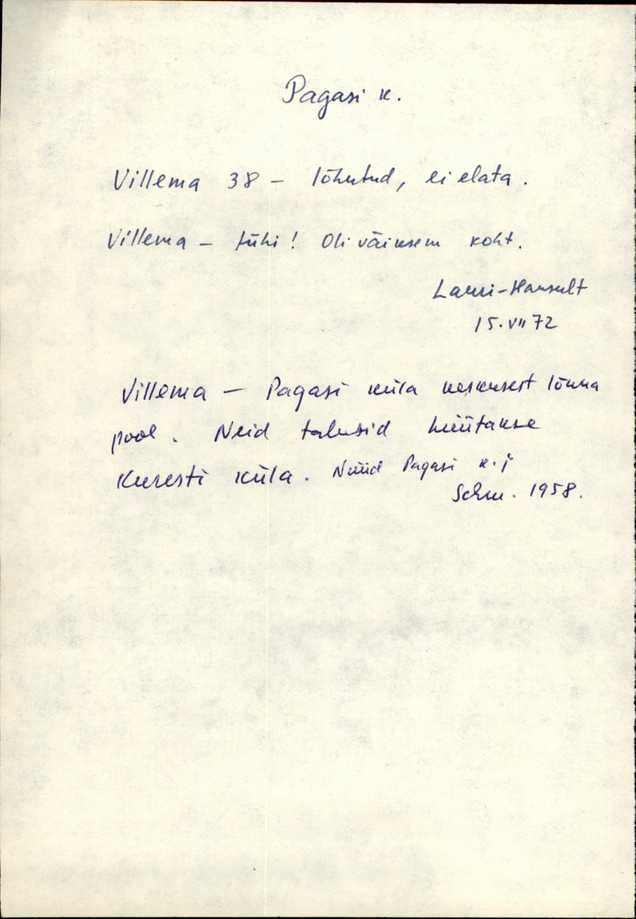 Pagasi k.
Villema 38 - lõhutud, ei elata.
Villema - tühi! Oli väiksem koht.
Lauri-Hansult
15.VII 72
Villema - Pagasi küla keskusest lõuna
pool. Neid talusid hüütakse
Kuresti küla. Nüüd Pagasi k.j
Schm. 1958.